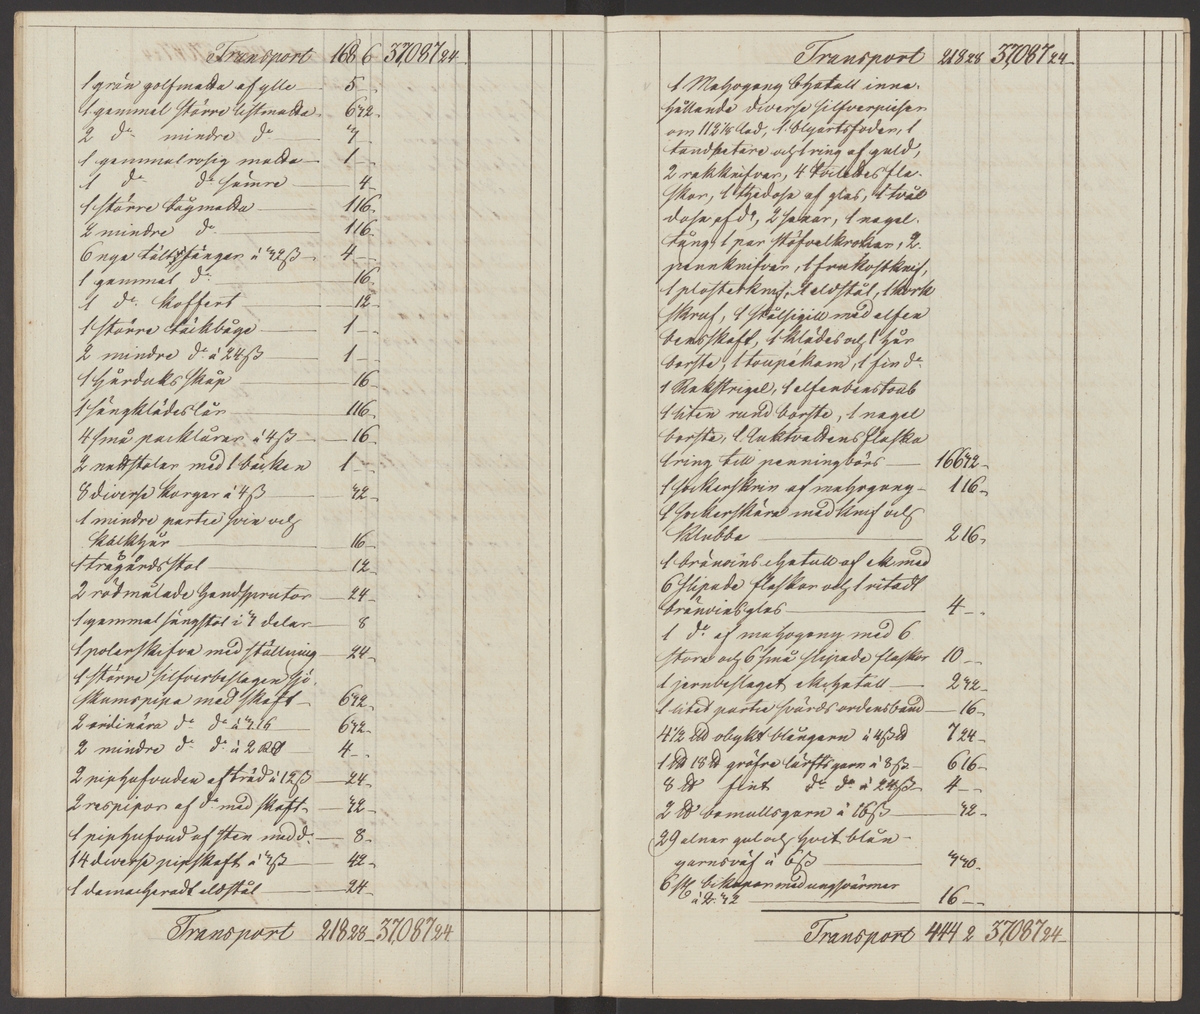 Transport 168 6 37,087 24
1 grön golfmatta af ylle 5 -
1 gammal större listmatta 6 32
2 do mindre do 3 -
1 gammal rosig matta 1 -
1 do do sämre 4 -
1 större tågmatta 1 16
2 mindre do 1 16
6 nya tältstänger à 32ß 4 -
1 gammal do 16
1 do Koffert 12
1 större täckbåge 1 - -
2 mindre do à 24ß 1 - -
1 hårduks skåp 16
1 sängklädeslår 1 16
4 små packlårar à 4ß 16
2 nattstolar med 1 bäcken 1 -
8 diverse korgar à 4ß 32
1 mindre partie svin och
kalkhår 16
1 trägårdsstol 12
2 rödmålade handsprutor 24
1 gammal sängstol i 3 delar 8
1 polerskifva med ställning 24
1 större silfverbeslagen sjö
skumspipa med skaft 6 32
2 ordinära do do à 3.16 6 32
2 mindre do do à 2 Rd 4 - -
2 piphufvuden af träd à 12ß 24
2 respipor af do med skaft 32
1 piphufvud af sten med do 8 -
14 diverse pipskaft à 3ß 42
1 damaskeradt eldstål 24
Transport 218 28 37,087 24
Transport 218 28 37,087 24
1 Mahogany Chatull inne-
hållande diverse silfverpjeser
om 112 1/8 lod, 1 Cigarrfoder, 1
tandpetare och 1 ring af guld,
2 rakknifvar, 4 toilettes fla-
skor, 1 thedosa af glas, 1 tvål
dosa af do, 2 saxar, 1 nagel-
tång, 1 par stöfvelkrokar, 2
pennknifvar, 1 frukostknif,
1 plosterknif, 1 eldstål, 1 kork
skruf, 1 stålsigill med elfen
bensskaft, 1 klädes och 1 hår
borste, 1 toupékam, 1 fin do
1 Rakstrigel, 1 elfenbens
1 liten rund borste, 1 nagel
borste, 1 luktvattensflaska
1 ring till penningbörs 166 32
1 sockerskrin af mahogany 1 16
1 sockerskära med knif och
klubba 2 16
1 bränvins chatull af ek med
6 slipade flaskor och 1 ritadt
bränvinsglas 4 - -
1 do af mahogany med 6
stora och 6 små slipade flaskor 10 - -
1 jernbeslaget ekchatull 2 32
1 litet partie svärdsordensband 16
41/2 ℔ obykt blångarn à 4ß ℔ 7 24
1 ℔ 18 ℔ gröfre lärftsgarn à 8ß 6 16
8 ℔ fint do do à 24ß 4 - -
2 ℔ bomullsgarn à 16ß 32
29 alnar gul och hvit blån-
garnsväf à 6ß 3 30
6 st bikupor med ungsvärmar
à 2.32 16 -
Transport 444 2 37,087 24